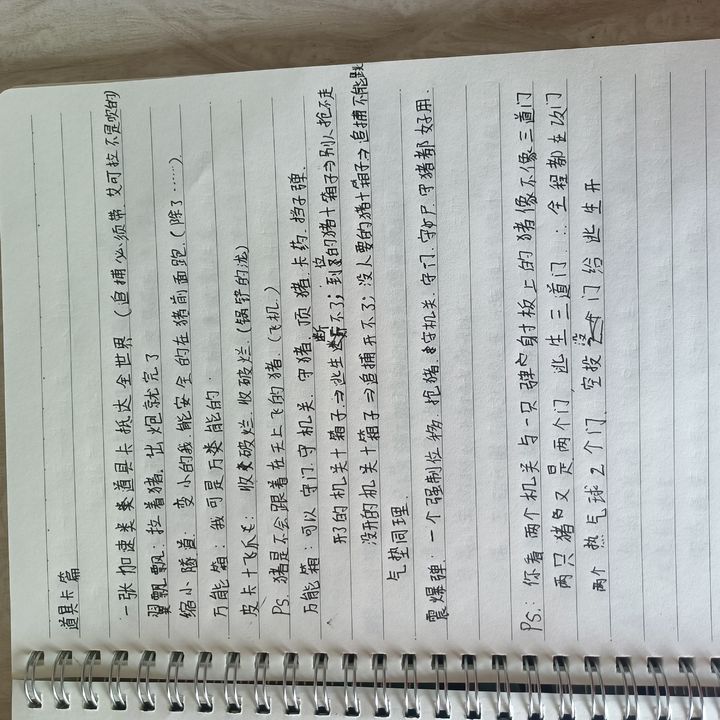 道具卡篇
一张加速类奏道具卡抵达全世界（追捕必须带，艾可拉不是吹的）
翼飘飘：拉着猪，出炮就完了
缩小隧道：变小的我，能安全的在猪前面跑.（除了……）
万能箱：我可是万类能的.
皮卡+飞爪：收破烂，收破烂.（锅铲的泷）
Ps. 猪是不会跟着在天上飞的猪.（飞机.）
万能箱：可以守门，守机关，守猪，顶猪，卡药，挡子弹.
开了的机关+箱子⇒逃生断不了；到位的猪+箱子⇒别人抢不走
没开的机关+箱子⇒追捕开不了；没人要的猪+箱子⇒追捕不能跳
气垫同理.
震爆弹：一个强制位移，抢猪，守机关，守门，守尸，守猪都好用.
Ps.：你看两个机关与一只弹射板上的猪像不像三道门
两只猪又是两个门，逃生三道门∴全程都在攻门
两个热气球2个门，空投没门给逃生开